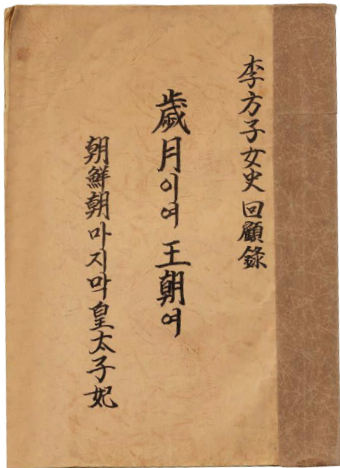 李方子女史 回顧錄
歲月이여 王朝여
朝鮮朝 마지막 皇太子妃